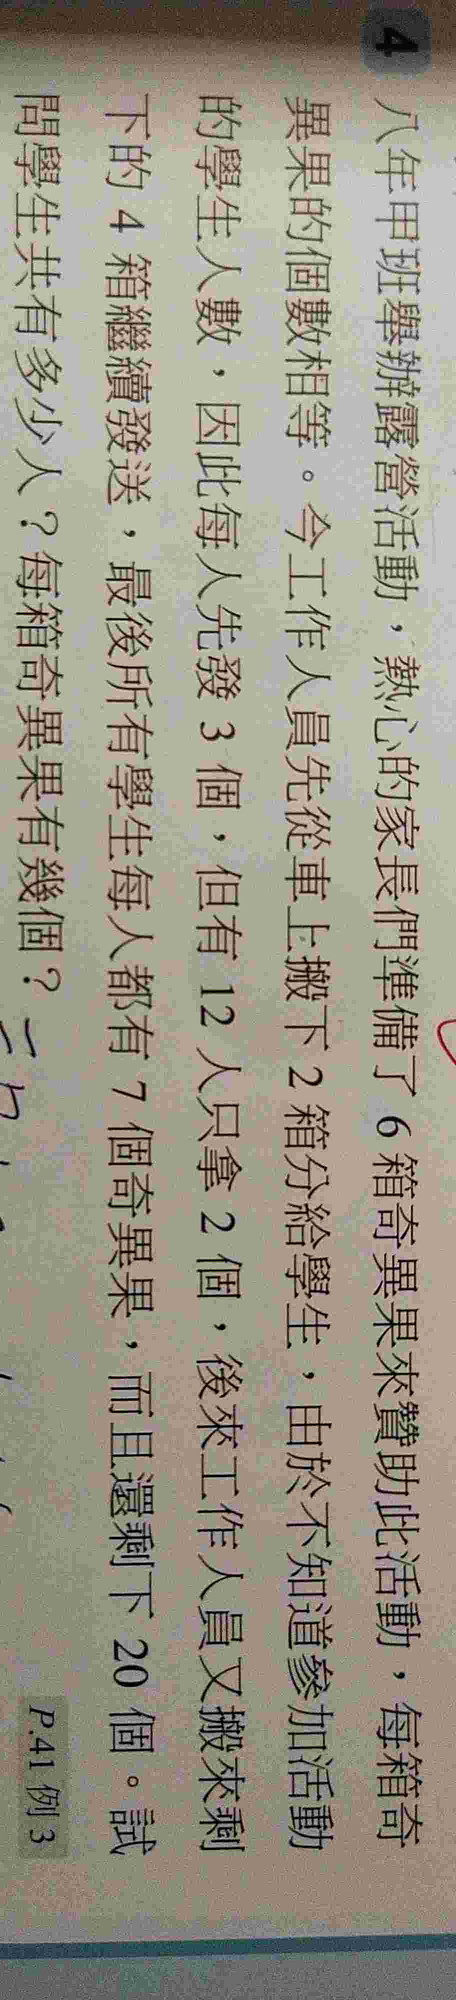 4
八年甲班舉辦露營活動，熱心的家長們準備了 6 箱奇異果來贊助此活動，每箱奇
異果的個數相等。今工作人員先從車上搬下 2 箱分給學生，由於不知道參加活動
的學生人數，因此每人先發 3 個，但有 12 人只拿 2 個，後來工作人員又搬來剩
下的 4 箱繼續發送，最後所有學生每人都有 7 個奇異果，而且還剩下 20 個。試
問學生共有多少人？每箱奇異果有幾個？
P.41 例 3